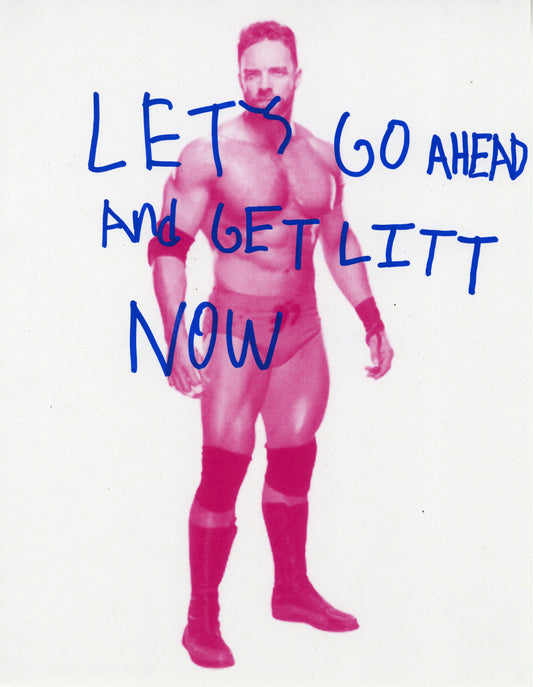 LET'S GO AHEAD
And GET LITT
NOW